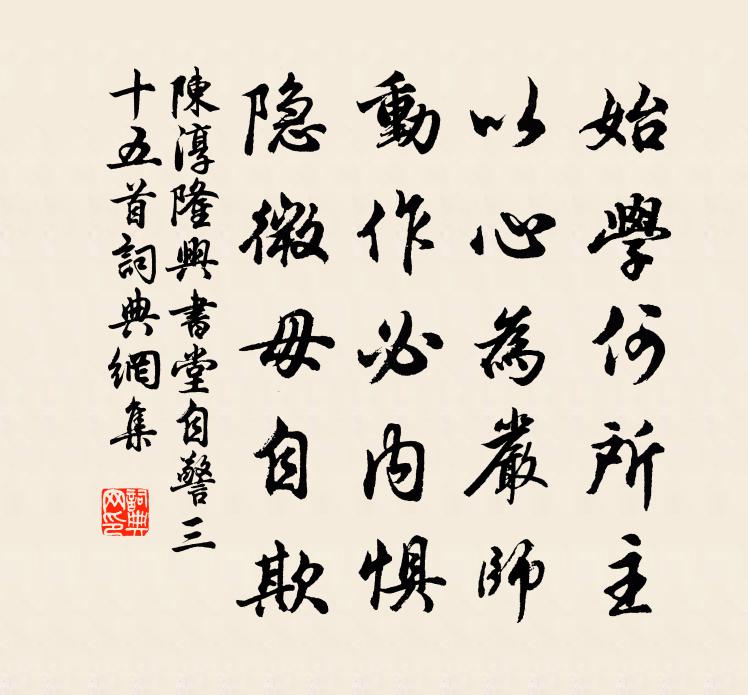 始學何所主
以心為嚴師
動作必内懼
隐微毋自欺
陳淳隆興書堂自警三
十五首詞典網集
詞典
网印